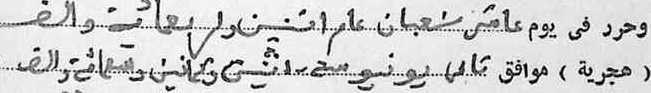 وحرر في يوم عاشر شعبان عام اثنين واربعمائة والف
( هجرية ) موافق ثانى يونيو سنة اثنين وثمانين وتسعمائة والف